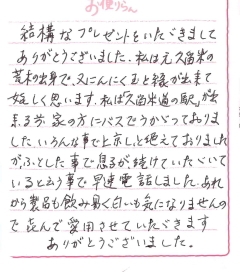 お便りらん
結構なプレゼントをいただきまして
ありがとうございました。私は元久留米の
荒木の出身で、又にんにくむと縁が出来て
嬉しく思います。私は久留米道の駅が出
来る前、家の方にバスでうかがっておりま
した。いろんな事で上京し、と絶えておりました
が、ふとした事で息子が続けていただいて
いると云う事で早速電話しました。あれ
から製品も飲み臭く白いも気になりませんの
で喜んで愛用させていただきます
ありがとうございました。